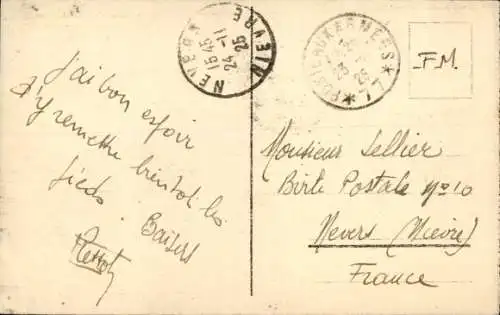 J'ai bon espoir
d'y remettre bientôt les
pieds
Baisers
NEVERS
15 45
24 - 11
25
NIEVRE
POSTE AUX ARMEES
23
25
* 77 *
F.M.
Monsieur Sellier
Bîte Postale No 10
Nevers (Nièvre)
France